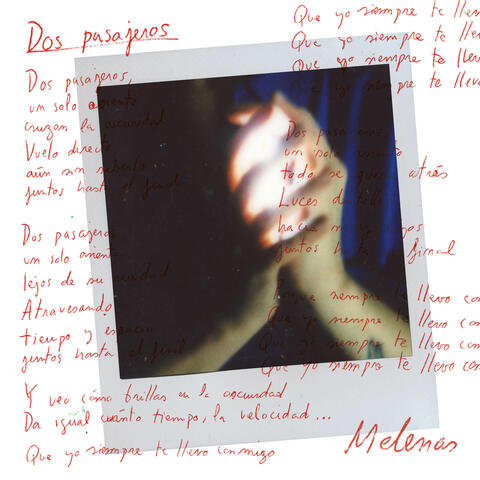 Dos pasajeros
Dos pasajeros,
un solo asiento
cruzan la oscuridad
Vuelo directo
aún sin saberlo
juntos hasta el final
Dos pasajeros
un solo asiento
lejos de su ciudad
Atravesando
tiempo y espacio
juntos hasta el final
Y veo cómo brillas en la oscuridad
Da igual cuánto tiempo, la velocidad...
Que yo siempre te llevo conmigo
Que yo siempre te llev
Que yo siempre te lle
Que yo siempre te lle
Que yo siempre te llev
Dos pasajeros,
un solo asiento
todo se queda atrás
Luces de
hacia muy lejos
juntos hasta el final
Porque siempre te llevo con
Que yo siempre te llevo con
Que yo siempre te llevo con
Que yo siempre te llevo con
Melenas